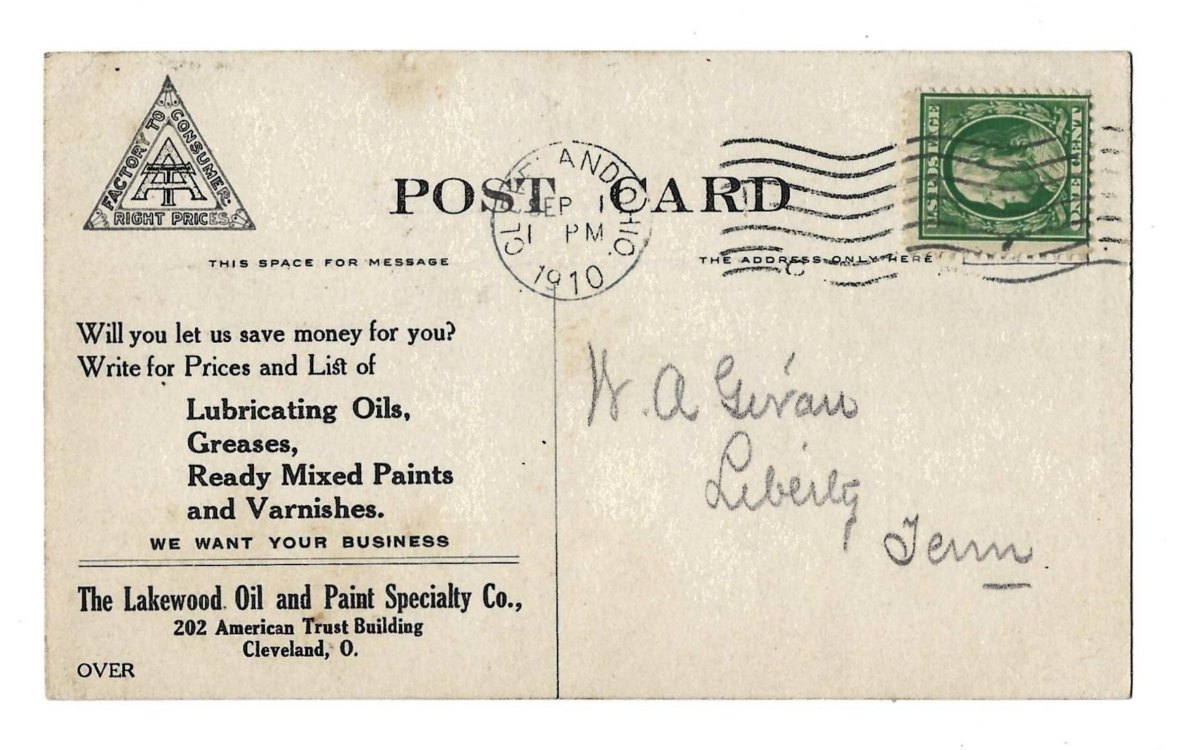 FACTORY TO CONSUMER.
RIGHT PRICES
POST CARD
CLEVELAND, OHIO.
SEP 1
1 PM
1910
U.S. POSTAGE
ONE CENT
THIS SPACE FOR MESSAGE
THE ADDRESS ONLY HERE
Will you let us save money for you?
Write for Prices and List of
Lubricating Oils,
Greases,
Ready Mixed Paints
and Varnishes.
WE WANT YOUR BUSINESS
The Lakewood Oil and Paint Specialty Co.,
202 American Trust Building
Cleveland, O.
OVER
W. A Givan
Liberty
Tenn